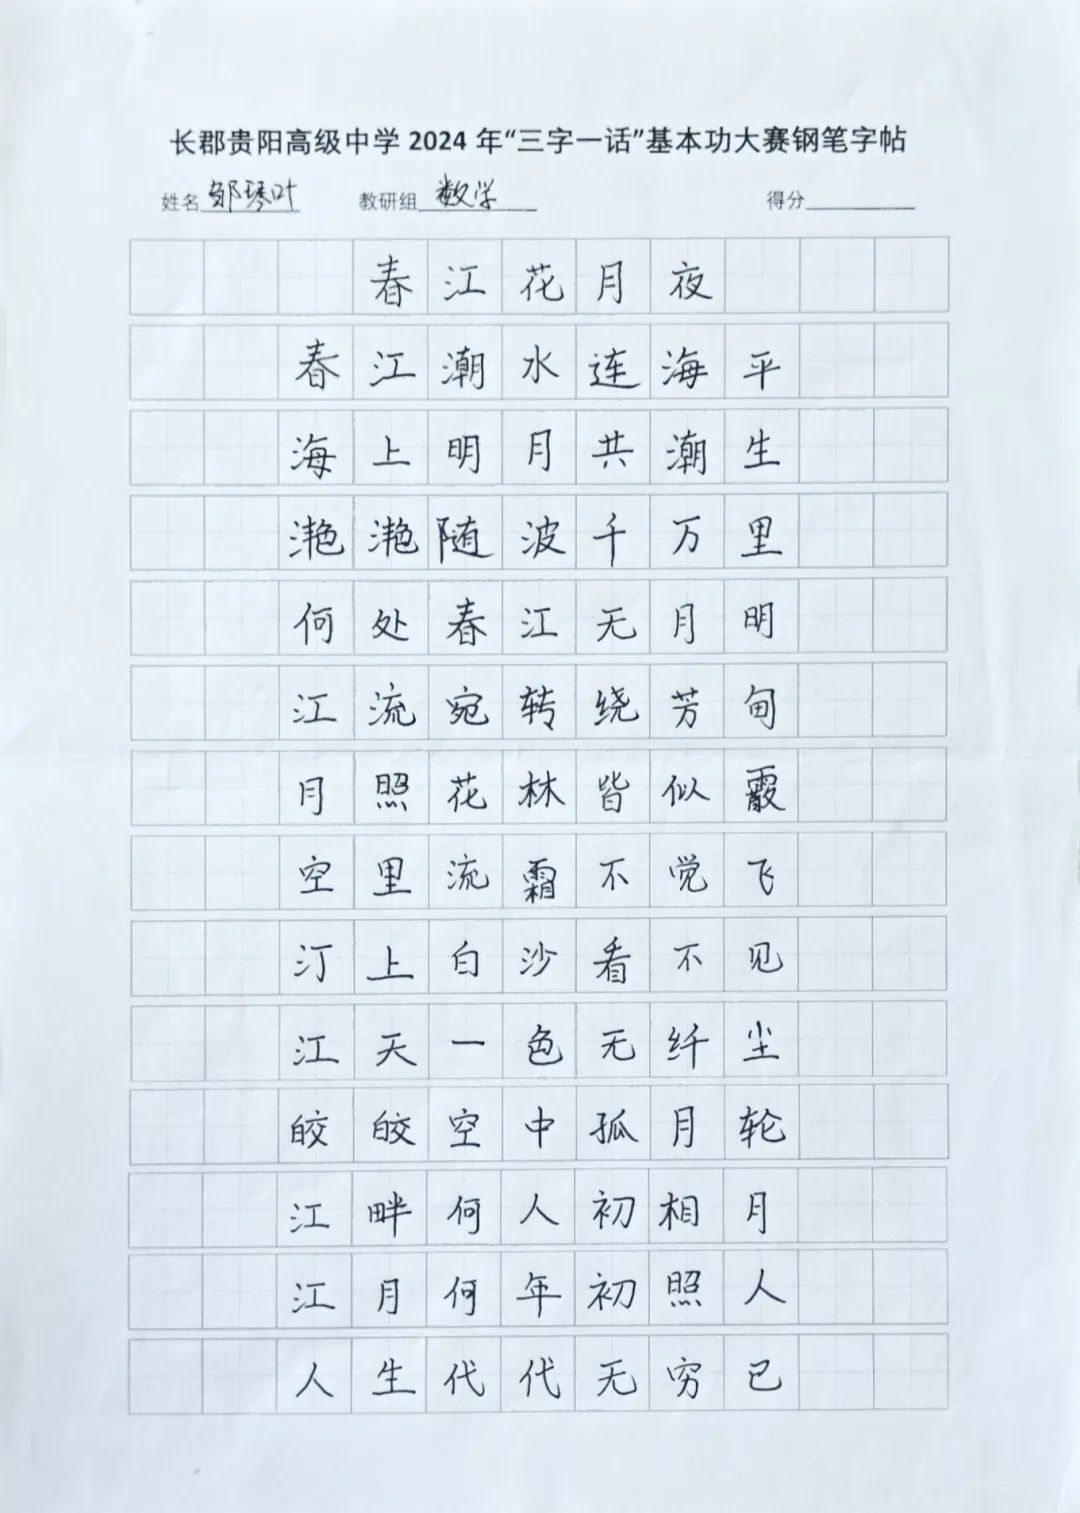 长郡贵阳高级中学2024年“三字一话”基本功大赛钢笔字帖
姓名 邹琴叶 教研组 数学 得分
春江花月夜
春江潮水连海平
海上明月共潮生
滟滟随波千万里
何处春江无月明
江流宛转绕芳甸
月照花林皆似霰
空里流霜不觉飞
汀上白沙看不见
江天一色无纤尘
皎皎空中孤月轮
江畔何人初相月
江月何年初照人
人生代代无穷已